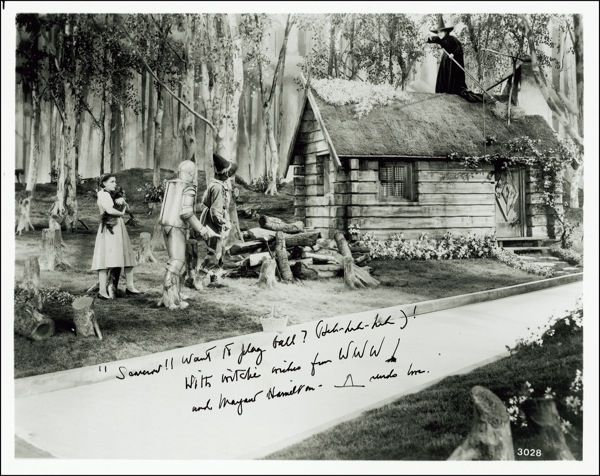 "Scarecrow!! Want to play ball? (Heh-heh-heh)!
With witchie wishes from WWW!
and Margaret Hamilton - love.
3028